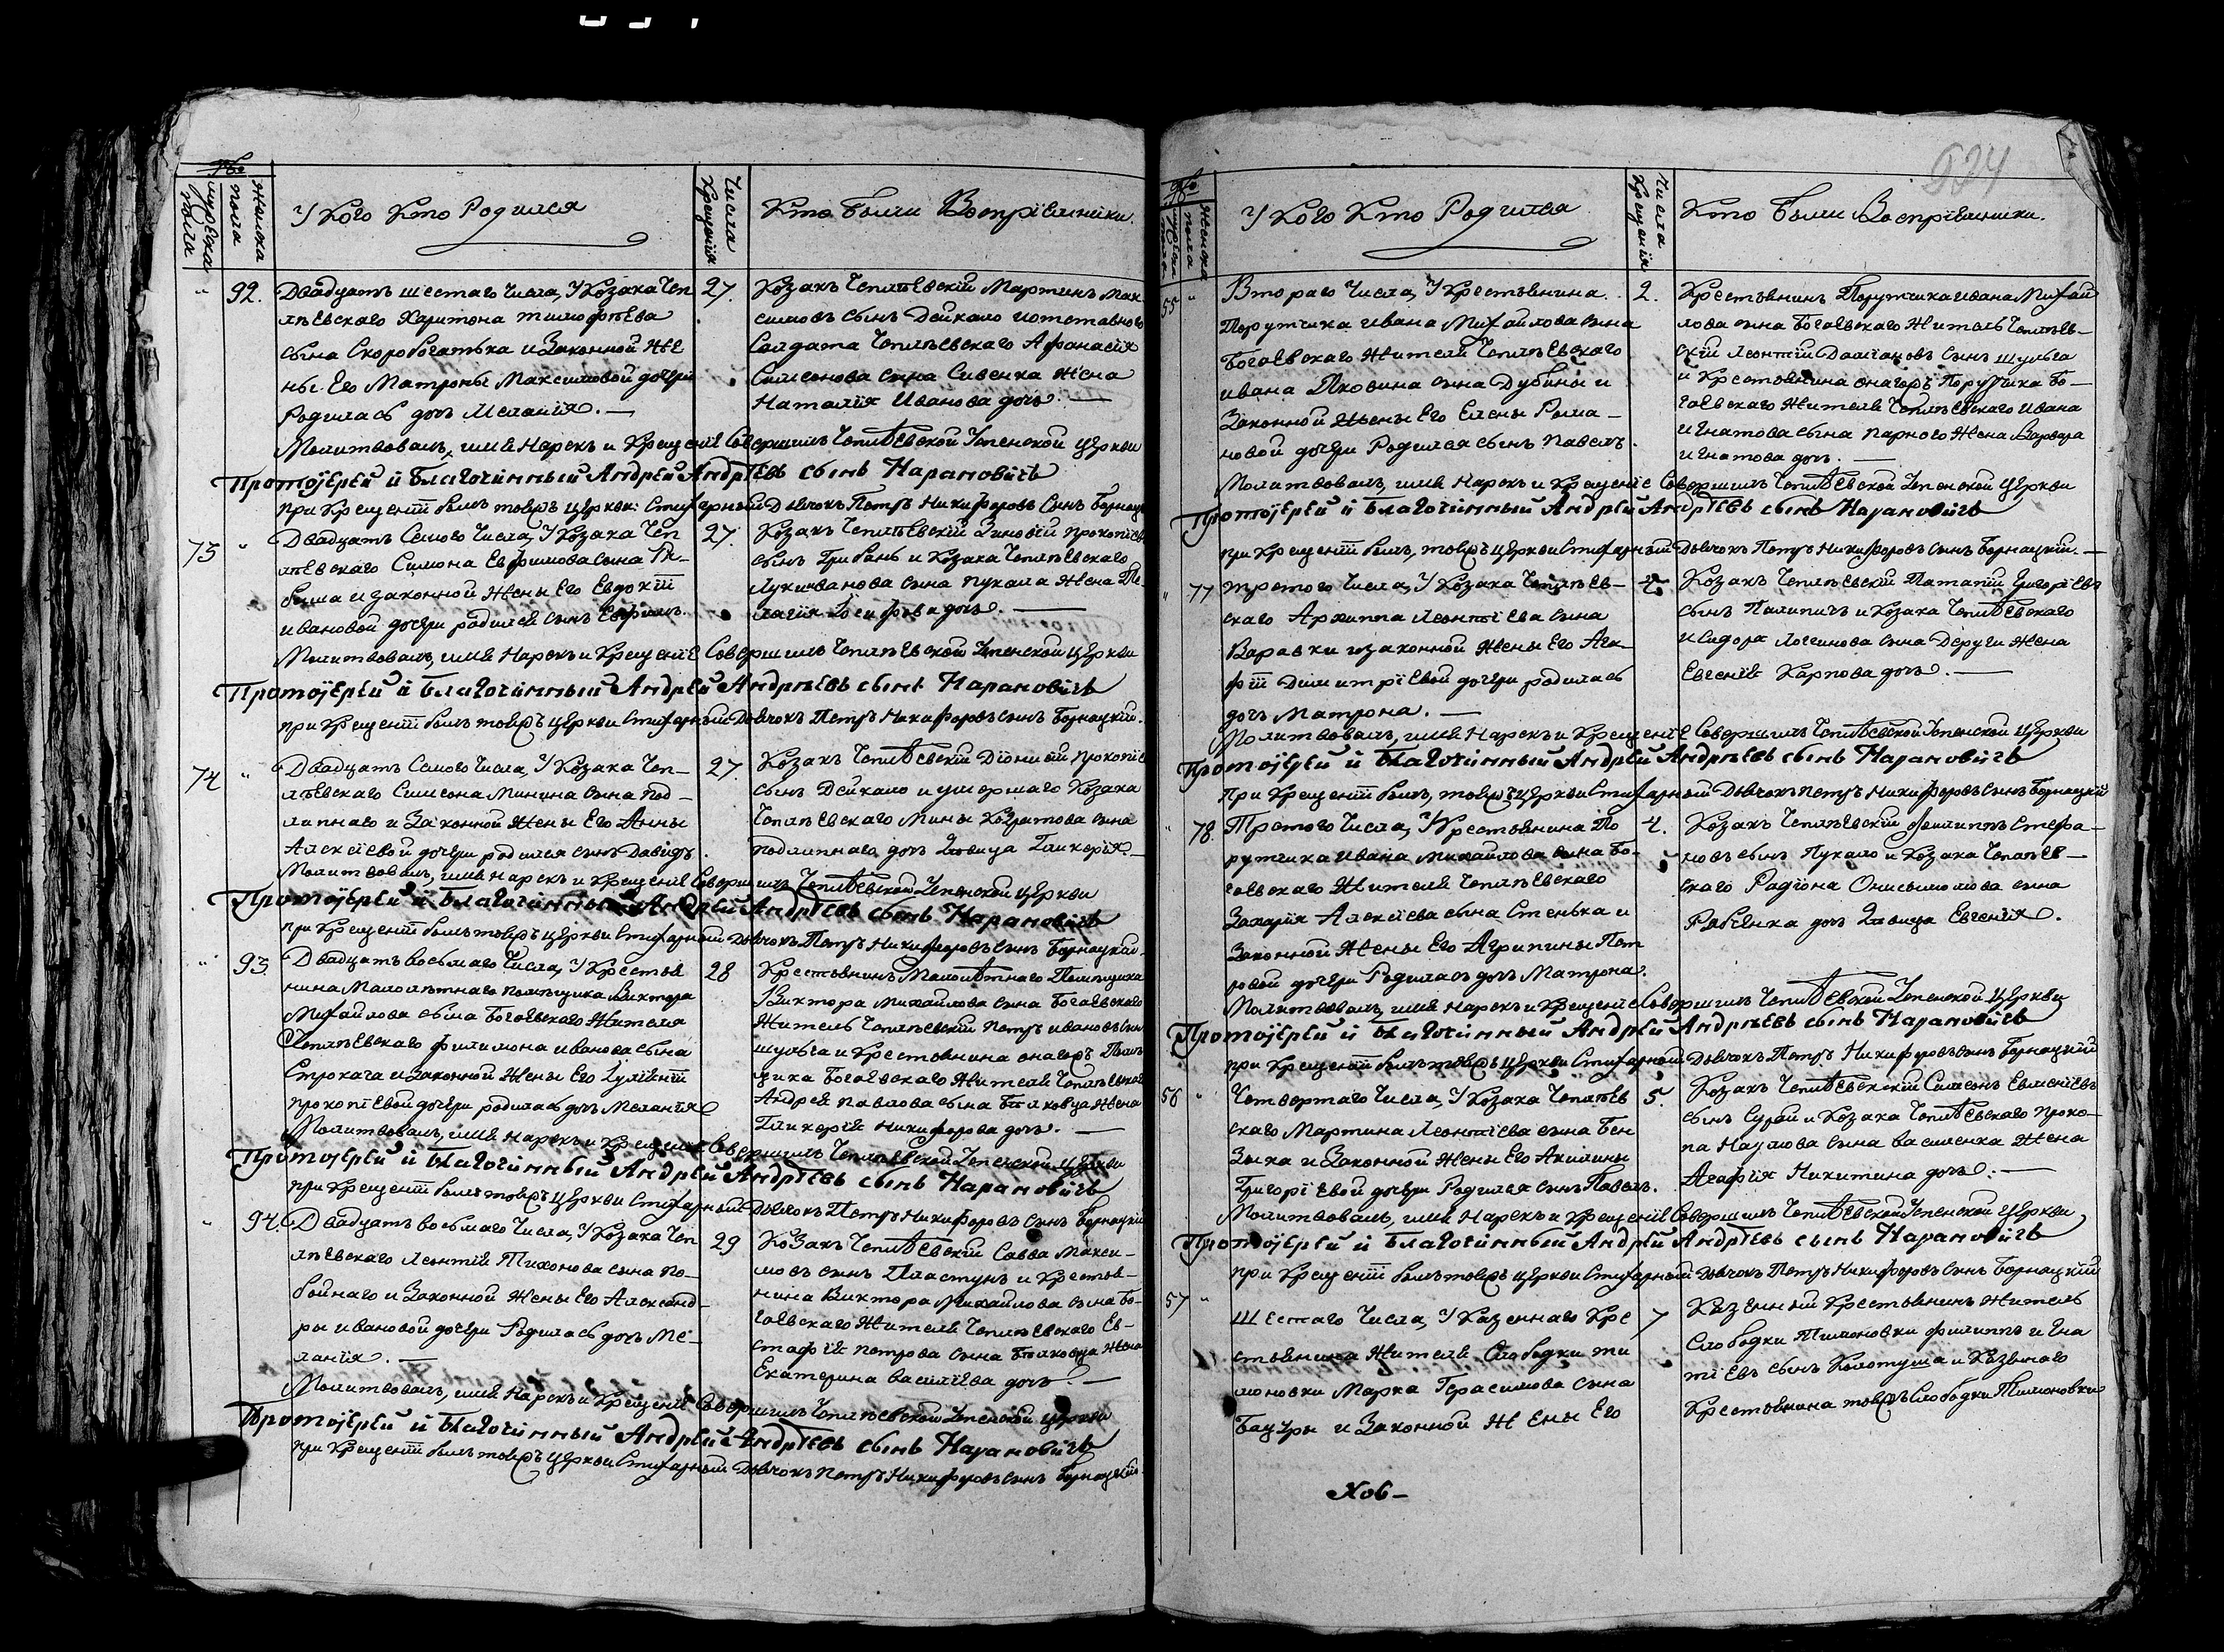 №
мужеска пола
женска пола
У кого кто родился
Числа крещенія
Кто были Воспріемники.
92.
Двадцать шестаго числа, У Козака Чеп
лѣевскаго Харитона тимофѣева
сына Скоробогатька и Законной же
ны Его Матроны Максимовой дочери
родилась дочь Меланія.
27.
Козакъ Чеплѣевскій Мартинъ Мак
симовъ сынъ Дейкало и отставного
Салдата Чеплѣевскаго Афанасія
Симеонова сына Сивенка жена
Наталія Иванова дочь.
Молитвовалъ, имя Нарекъ и Крещеніе Совершилъ Чеплѣевской Успенской церкви
Протоіерей и Благочинный Андрей Андрѣевъ сынъ Нарановичь
при Крещеніи былъ тояжъ церкви Стихарный Дьячокъ Петръ Никифоровъ Сынъ Борнацкій
73
Двадцать Семого числа, У Козака Чеп
лѣевскаго Симона Евфимова сына
и законной жены Его Евдокіи
ивановой дочери родился сынъ Евфимъ.
27.
Козакъ Чеплѣевскій Зиновій прокопіевъ
сынъ Грибань и Козака Чеплѣевскаго
Луки иванова сына пукала жена Пе
лагія Іосифова дочь.
Молитвовалъ, имя Нарекъ и Крещеніе Совершилъ Чеплѣевской Успенской церкви
Протоіерей и Благочинный Андрей Андрѣевъ сынъ Нарановичь
при Крещеніи былъ тояжъ церкви Стихарный Дьячокъ Петръ Никифоровъ сынъ Борнацкій.
74
Двадцать Семого числа, У Козака Чеп-
лѣевскаго Симеона Минина сына Под-
липнаго и Законной жены Его Анны
Алексіевой дочери родился сынъ Давидъ.
27.
Козакъ Чеплѣевскій Діонисій прокопіевъ
сынъ Дейкало и умершаго Козака
Чеплѣевскаго Мины Кодратова сына
подлипнаго дочь Дѣвица Гликерія.
Молитвовалъ, имя нарекъ и крещеніе Совершилъ Чеплѣевской Успенской церкви
Протоіерей и Благочинный Андрей Андрѣевъ сынъ Нарановичь
при Крещеніи былъ тояжъ церкви Стихарный Дьячокъ Петръ Никифоровъ сынъ Борнацкій.
93.
Двадцать восьмаго числа, У Крестья
нина Малолѣтнаго помѣщика Виктора
Михайлова сына Богаевскаго жителя
Чеплѣевскаго филимона иванова сына
Строкача и Законной жены Его Іуліяніи
прокопіевой дочери родилась дочь Меланія
28
Крестьянинъ Малолѣтнаго Помѣщика
Виктора Михайлова сына Богаевскаго
житель Чеплѣевскій петръ ивановъ сынъ
шульга и Крестьянина онагожъ Помѣ
щика Богаевскаго жителя Чеплѣевскаго
Андрея павлова сына Бѣлковца жена
Гликерія Никифорова дочь.
Молитвовалъ, имя Нарекъ и Крещеніе Совершилъ Чеплѣевской Успенской церкви
Протоіерей и Благочинный Андрей Андрѣевъ сынъ Нарановичь
при Крещеніи былъ тояжъ церкви Стихарный Дьячокъ Петръ Никифоровъ сынъ Борнацкій
94.
Двадцать восьмаго числа, У Козака Чеп
лѣевскаго Леонтія Тихонова сына По-
бойнаго и Законной жены Его Александ-
ры ивановой дочери родилась дочь Ме-
ланія.
29
Козакъ Чеплѣевскій Савва Макси-
мовъ сынъ Пластунъ и Крестья-
нина Виктора Михайлова сына Бо-
гаевскаго жителя Чеплѣевскаго Ев-
стафія петрова сына Бѣлковца жена
Екатерина василіева дочь.
Молитвовалъ, имя Нарекъ и Крещеніе Совершилъ Чеплѣевской Успенской церкви
Протоіерей и Благочинный Андрей Андрѣевъ сынъ Нарановичь
при Крещеніи былъ тояжъ церкви Стихарный Дьячокъ петръ Никифоровъ сынъ Борнацкій.
524
№
мужеска пола
женска пола
У кого кто Родился
Числа Крещенія
Кто были Воспріемники.
55
Втораго числа, У Крестьянина
Порутчика ивана Михайлова сына
Богаевскаго жителя Чеплѣевскаго
ивана Яковина сына Дубины и
Законной жены Его Елены Рома-
новой дочери Родился сынъ павелъ.
2.
Крестьянинъ Порутчика ивана Михай
лова сына Богаевскаго житель Чеплѣев-
скій Леонтій Даміановъ сынъ шульга
и Крестьянина онагожъ Порутчика Бо-
гаевскаго жителя Чеплѣевскаго ивана
игнатова сына парного жена Варвара
игнатова дочь.
Молитвовалъ, имя Нарекъ и Крещеніе Совершилъ Чеплѣевской Успенской церкви
Протоіерей и Благочинный Андрей Андрѣевъ сынъ Нарановичь
при Крещеніи былъ, тояжъ церкви Стихарный Дьячокъ Петръ Никифоровъ сынъ Борнацкій.
77
третого числа, У Козака Чеплѣев-
скаго Архиппа Леонтіева сына
Варавки и законной жены Его Ага-
фіи Димитріевой дочери родилась
дочь Матрона.
Козакъ Чеплѣевскій Патапій Григоріевъ
сынъ Пилипичъ и Козака Чеплѣевскаго
исидора Логгинова сына Деруги жена
Евгенія Карпова дочь.
Молитвовалъ, имя Нарекъ и Крещеніе Совершилъ Чеплѣевской Успенской церкви
Протоіерей и Благочинный Андрей Андрѣевъ сынъ Нарановичь
при Крещеніи былъ, тояжъ церкви Стихарный Дьячокъ петръ Никифоровъ сынъ Борнацкій
78.
Третого числа, У Крестьянина По
рутчика ивана михайлова сына Бо-
гаевскаго жителя Чеплѣевскаго
Захарія Алексіева сына Стенька и
Законной жены Его Агрипины Пет
ровой дочери Родилась дочь Матрона.
4.
Козакъ Чеплѣевскій филиппъ Стефа-
новъ сынъ Пукало и Козака Чеплѣев-
скаго Родіона Онисимова сына
Рябенка дочь Дѣвица Евгенія.
Молитвовалъ, имя Нарекъ и Крещеніе Совершилъ Чеплѣевской Успенской церкви
Протоіерей и Благочинный Андрей Андрѣевъ сынъ Нарановичь
при Крещеніи былъ тояжъ церкви Стихарный Дьячокъ Петръ Никифоровъ сынъ Борнацкій
56
Четвертаго числа, У Козака Чеплѣев
скаго Мартина Леонтіева сына Бен
зыка и Законной жены Его Акилины
Григоріевой дочери Родился сынъ Павелъ.
5.
Козакъ Чеплѣевскій Симеонъ Евменіевъ
сынъ Сурай и Козака Чеплѣевскаго проко-
па Наумова сына василенка жена
Агафія Никитина дочь.
Молитвовалъ, имя Нарекъ и Крещеніе Совершилъ Чеплѣевской Успенской церкви
Протоіерей и Благочинный Андрей Андрѣевъ сынъ Нарановичь
при Крещеніи былъ тояжъ церкви Стихарный Дьячокъ Петръ Никифоровъ сынъ Борнацкій
57
Шестаго числа, У Казеннаго Кре
стьянина жителя Слободки ти
моновки Марка Герасимова сына
Бацуры и Законной жены Его
7
Казенный Крестьянинъ житель
Слободки Тимоновки филиппъ игна
тіевъ сынъ Колотуша и Казеннаго
Крестьянина тояжъ Слободки Тимоновки
Хов-